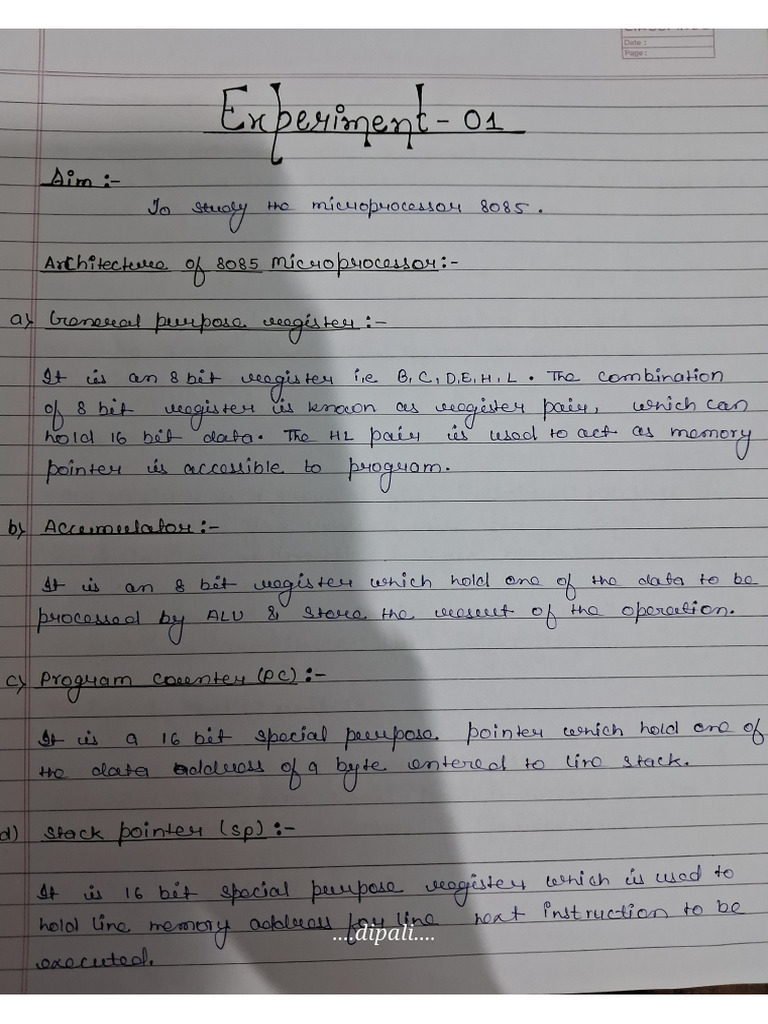 CLASSMATE
Date :
Page :
Experiment - 01
Aim :-
To study the microprocessor 8085.
Architecture of 8085 microprocessor:-
a) General purpose register :-
It is an 8 bit register i,e B,C,D,E,H,L. The combination
of 8 bit register is known as register pair, which can
hold 16 bit data. The HL pair is used to act as memory
pointer is accessible to program.
b) Accumulator :-
It is an 8 bit register which hold one of the data to be
processed by ALU & store the result of the operation.
c) Program counter (PC) :-
It is a 16 bit special purpose pointer which hold one of
the data address of a byte entered to line stack.
d) Stack pointer (SP) :-
It is 16 bit special purpose register which is used to
hold line memory address for line next instruction to be
executed.
....dipali....